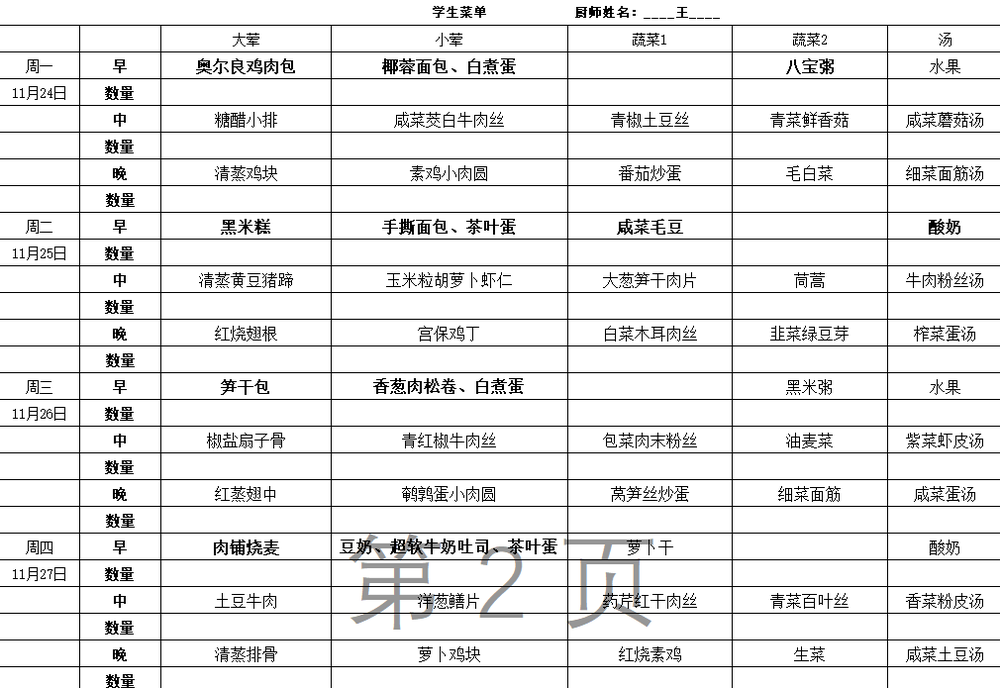 学生菜单 厨师姓名：____王____
大荤 小荤 蔬菜1 蔬菜2 汤
周一 早 奥尔良鸡肉包 椰蓉面包、白煮蛋 八宝粥 水果
11月24日 数量
中 糖醋小排 咸菜茭白牛肉丝 青椒土豆丝 青菜鲜香菇 咸菜蘑菇汤
数量
晚 清蒸鸡块 素鸡小肉圆 番茄炒蛋 毛白菜 细菜面筋汤
数量
周二 早 黑米糕 手撕面包、茶叶蛋 咸菜毛豆 酸奶
11月25日 数量
中 清蒸黄豆猪蹄 玉米粒胡萝卜虾仁 大葱笋干肉片 茼蒿 牛肉粉丝汤
数量
晚 红烧翅根 宫保鸡丁 白菜木耳肉丝 韭菜绿豆芽 榨菜蛋汤
数量
周三 早 笋干包 香葱肉松卷、白煮蛋 黑米粥 水果
11月26日 数量
中 椒盐扇子骨 青红椒牛肉丝 包菜肉末粉丝 油麦菜 紫菜虾皮汤
数量
晚 红蒸翅中 鹌鹑蛋小肉圆 莴笋丝炒蛋 细菜面筋 咸菜蛋汤
数量
周四 早 肉铺烧麦 豆奶、超软牛奶吐司、茶叶蛋 萝卜干 酸奶
11月27日 数量
中 土豆牛肉 洋葱鳝片 药芹红干肉丝 青菜百叶丝 香菜粉皮汤
数量
晚 清蒸排骨 萝卜鸡块 红烧素鸡 生菜 咸菜土豆汤
数量
第 2 页